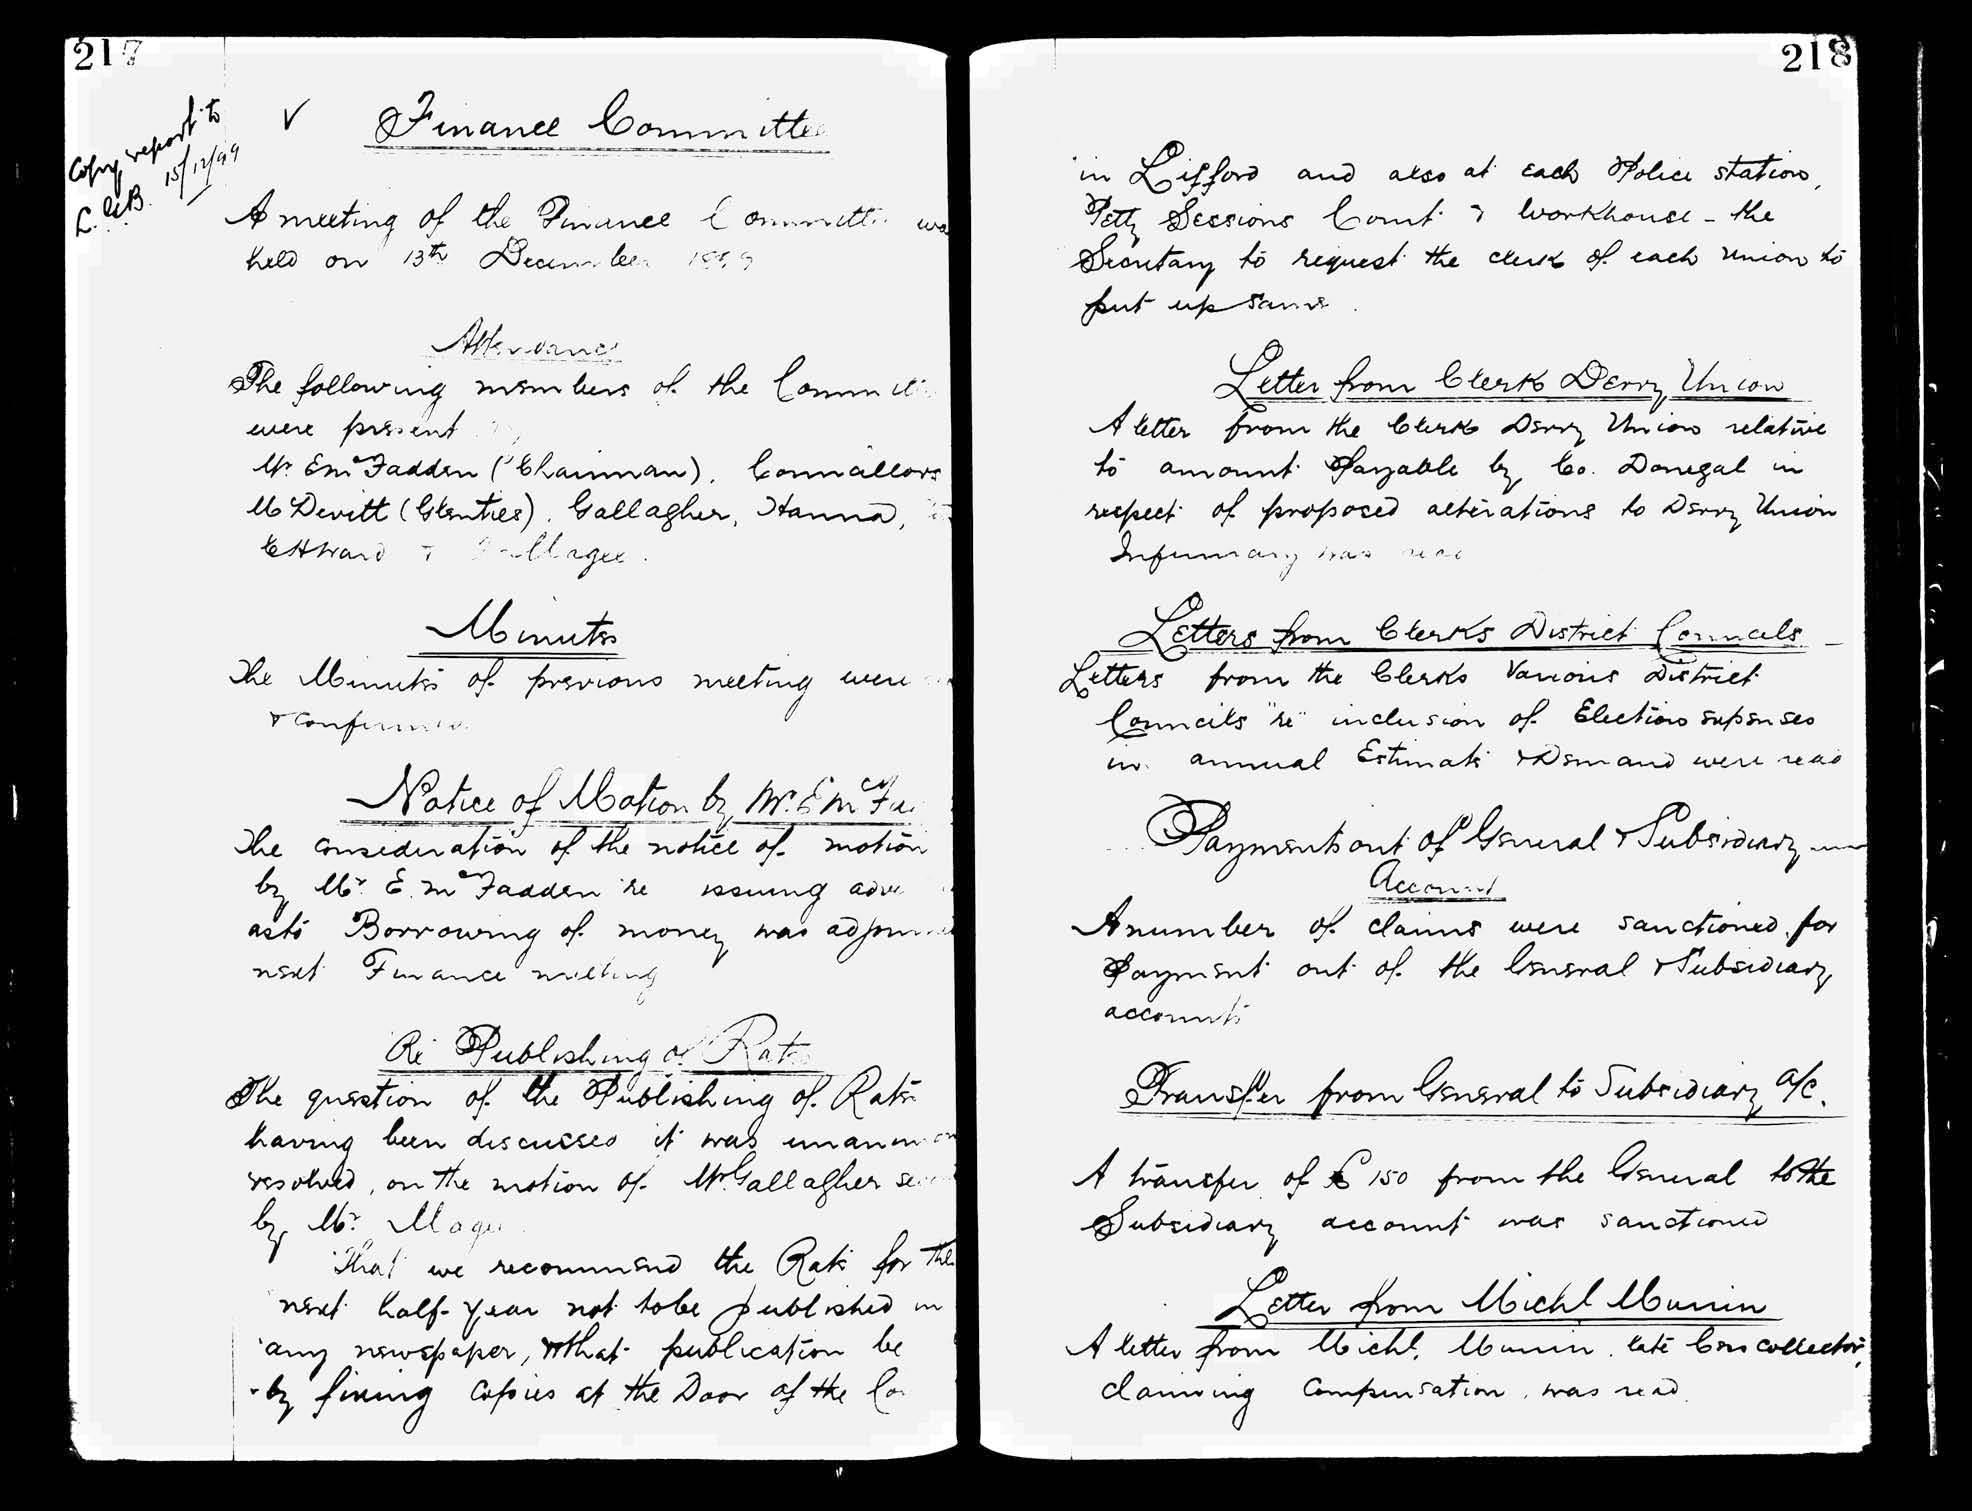 217
Copy report to
L.G.B. 15/12/99
✓ Finance Committee
A meeting of the Finance Committee was
held on 13th December 1899
Attendance
The following members of the Committee
were present
Mr. E McFadden (Chairman), Councillors
McDevitt (Glenties), Gallagher, Hanna,
E H Ward & Magee.
Minutes
The Minutes of previous meeting were
& confirmed.
Notice of Motion by Mr. E McFa
The consideration of the notice of motion
by Mr. E. McFadden re issuing adve
as to Borrowing of money was adjourned
next Finance meeting
Re Publishing of Rates
The question of the Publishing of Rates
having been discussed it was unanimou
resolved, on the motion of Mr Gallagher sec
by Mr. Magee
That we recommend the Rate for the
next half-year not to be published in
any newspaper, & that publication be
by fixing copies at the Door of the Co
218
in Lifford and also at each Police station,
Petty Sessions Court & Workhouse - the
Secretary to request the clerk of each union to
put up same.
Letter from Clerk Derry Union
A letter from the Clerk Derry Union relative
to amount Payable by Co. Donegal in
respect of proposed alterations to Derry Union
Infirmary was read
Letters from Clerks District Councils
Letters from the Clerks Various District
Councils "re" inclusion of Election expenses
in annual Estimate & Demand were read
Payments out of General & Subsidiary
Account
A number of claims were sanctioned for
Payment out of the General & Subsidiary
accounts
Transfer from General to Subsidiary a/c.
A transfer of £150 from the General to the
Subsidiary account was sanctioned
Letter from Michl Munin
A letter from Michl. Munin, late Cess collector,
claiming compensation, was read.